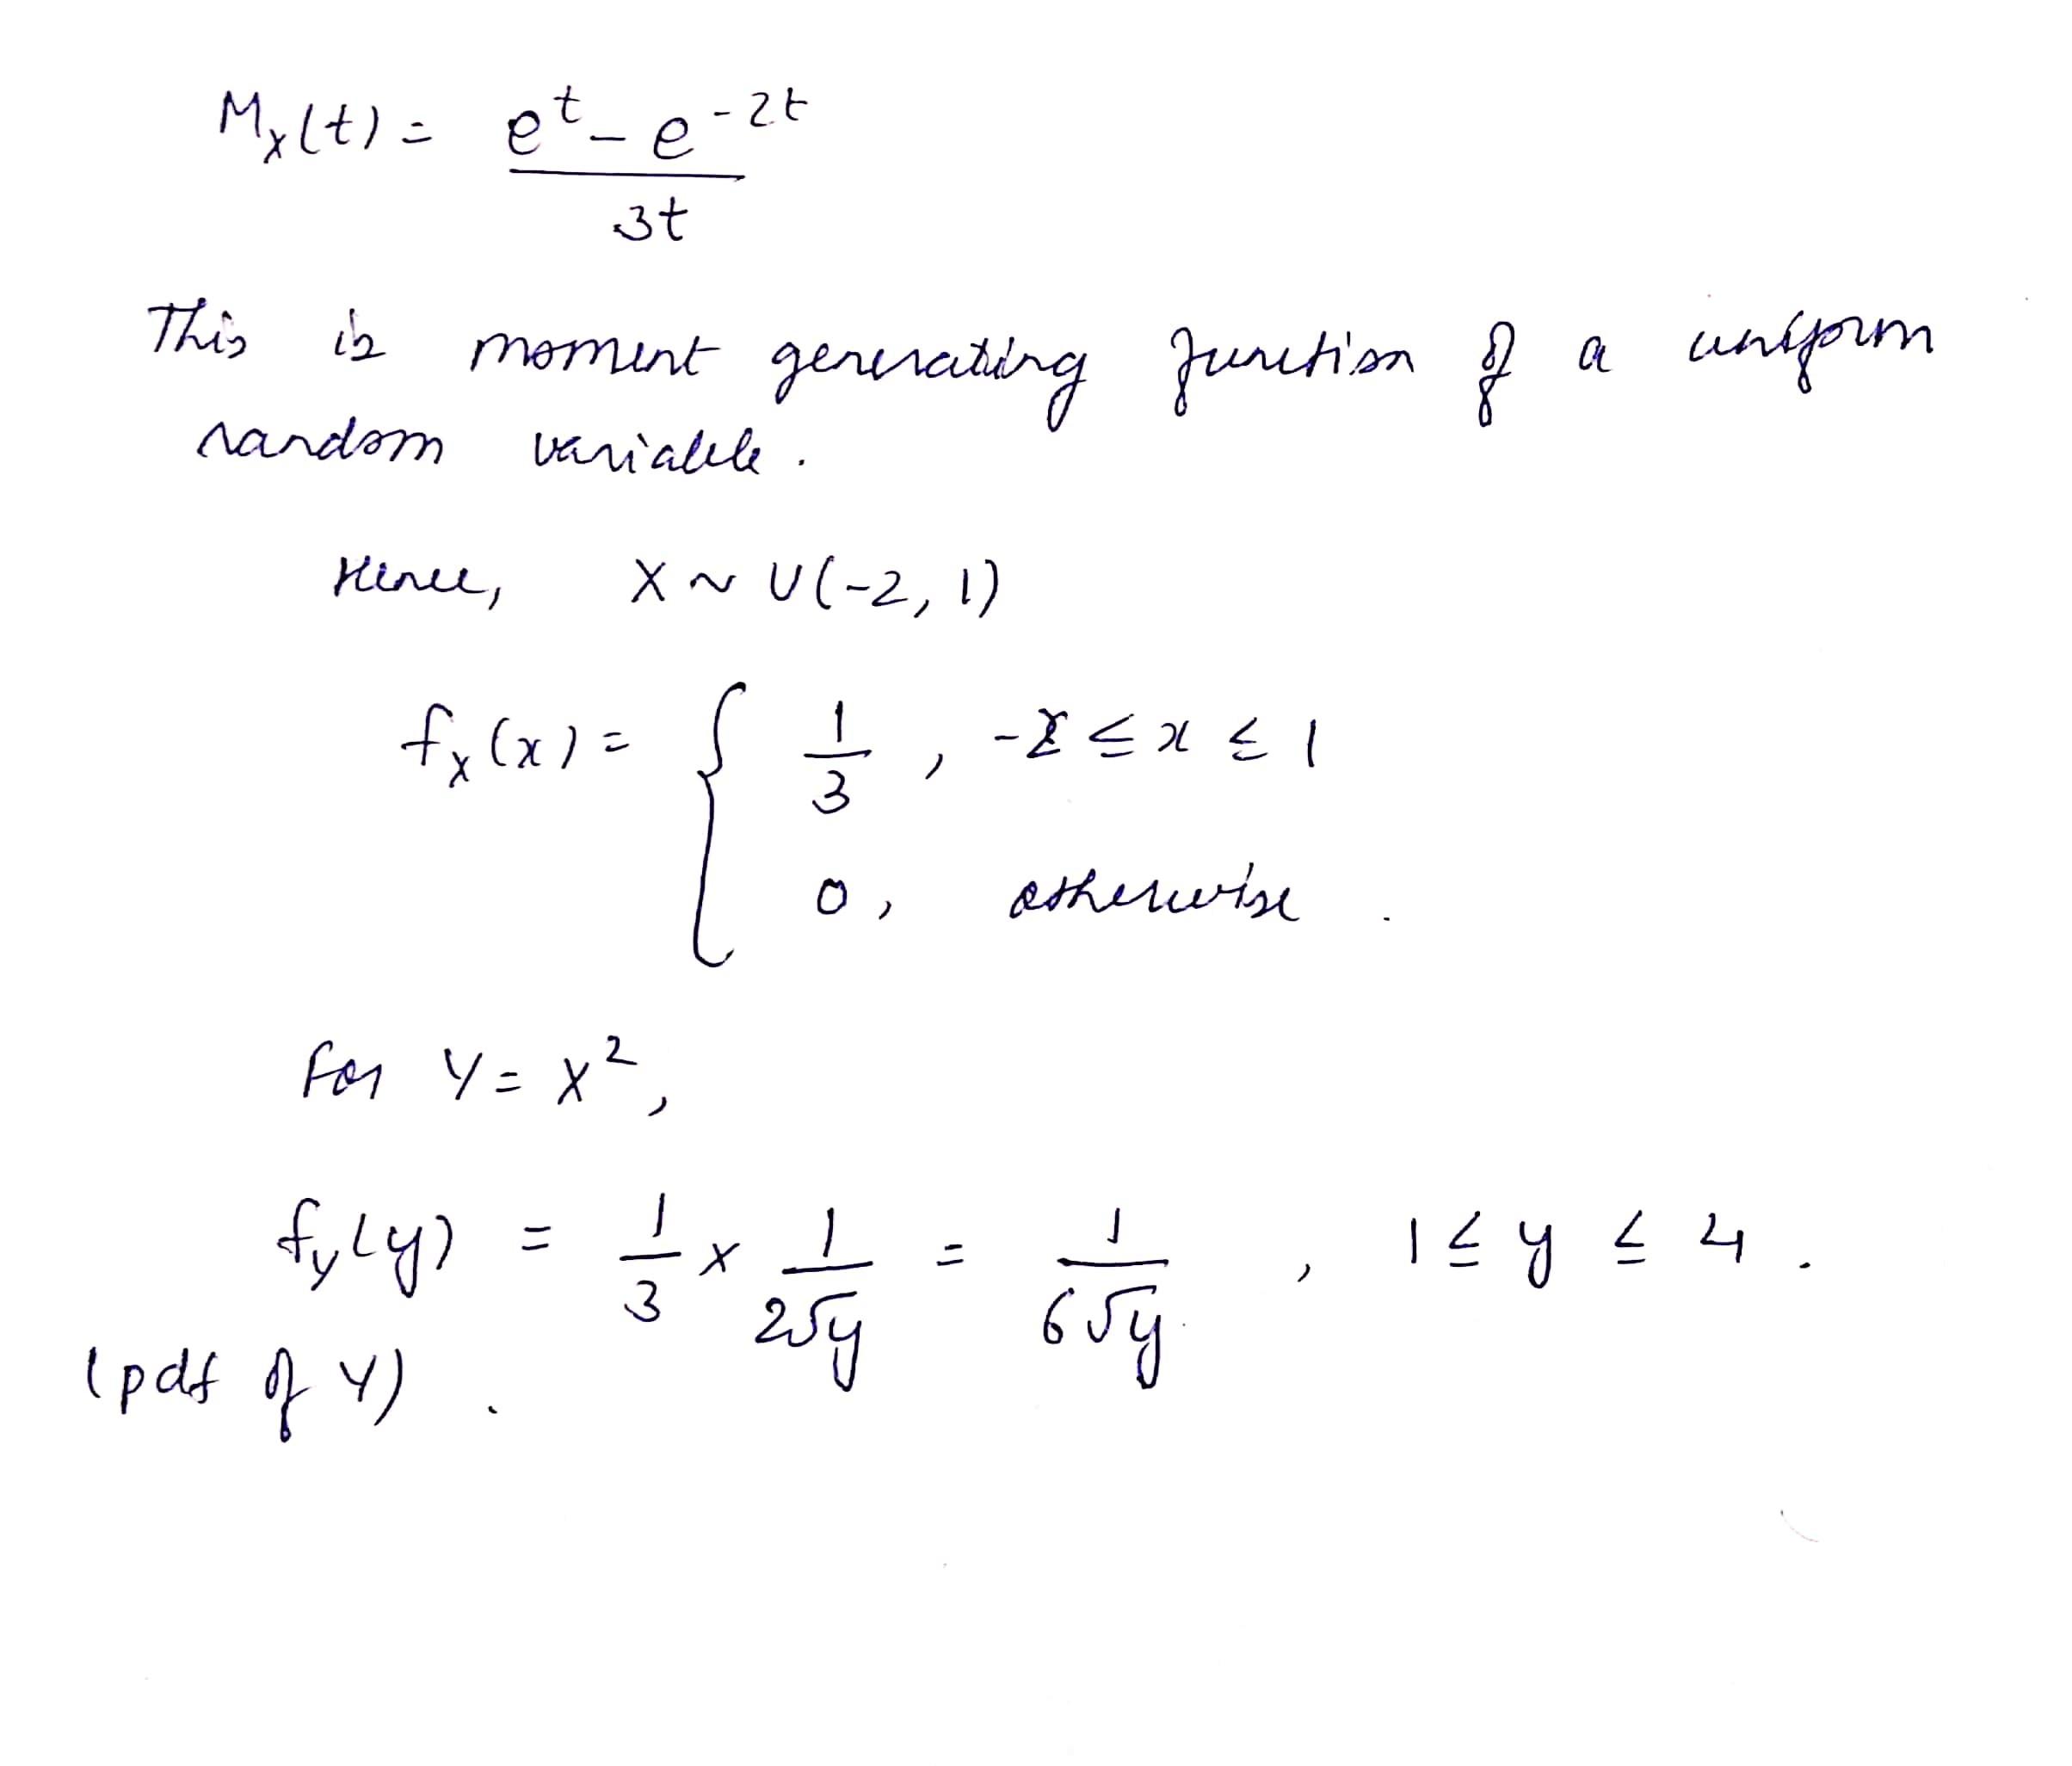 M_X(t) = (e^t - e^{-2t}) / 3t
This is moment generating function of a uniform
random variable.
Hence, X ~ U(-2, 1)
f_X(x) = { 1/3 , -2 ≤ x ≤ 1
0, otherwise .
For Y = X^2 ,
f_Y(y) = 1/3 × 1/(2√y) = 1/(6√y) , 1 ≤ y ≤ 4 .
(pdf of Y) .